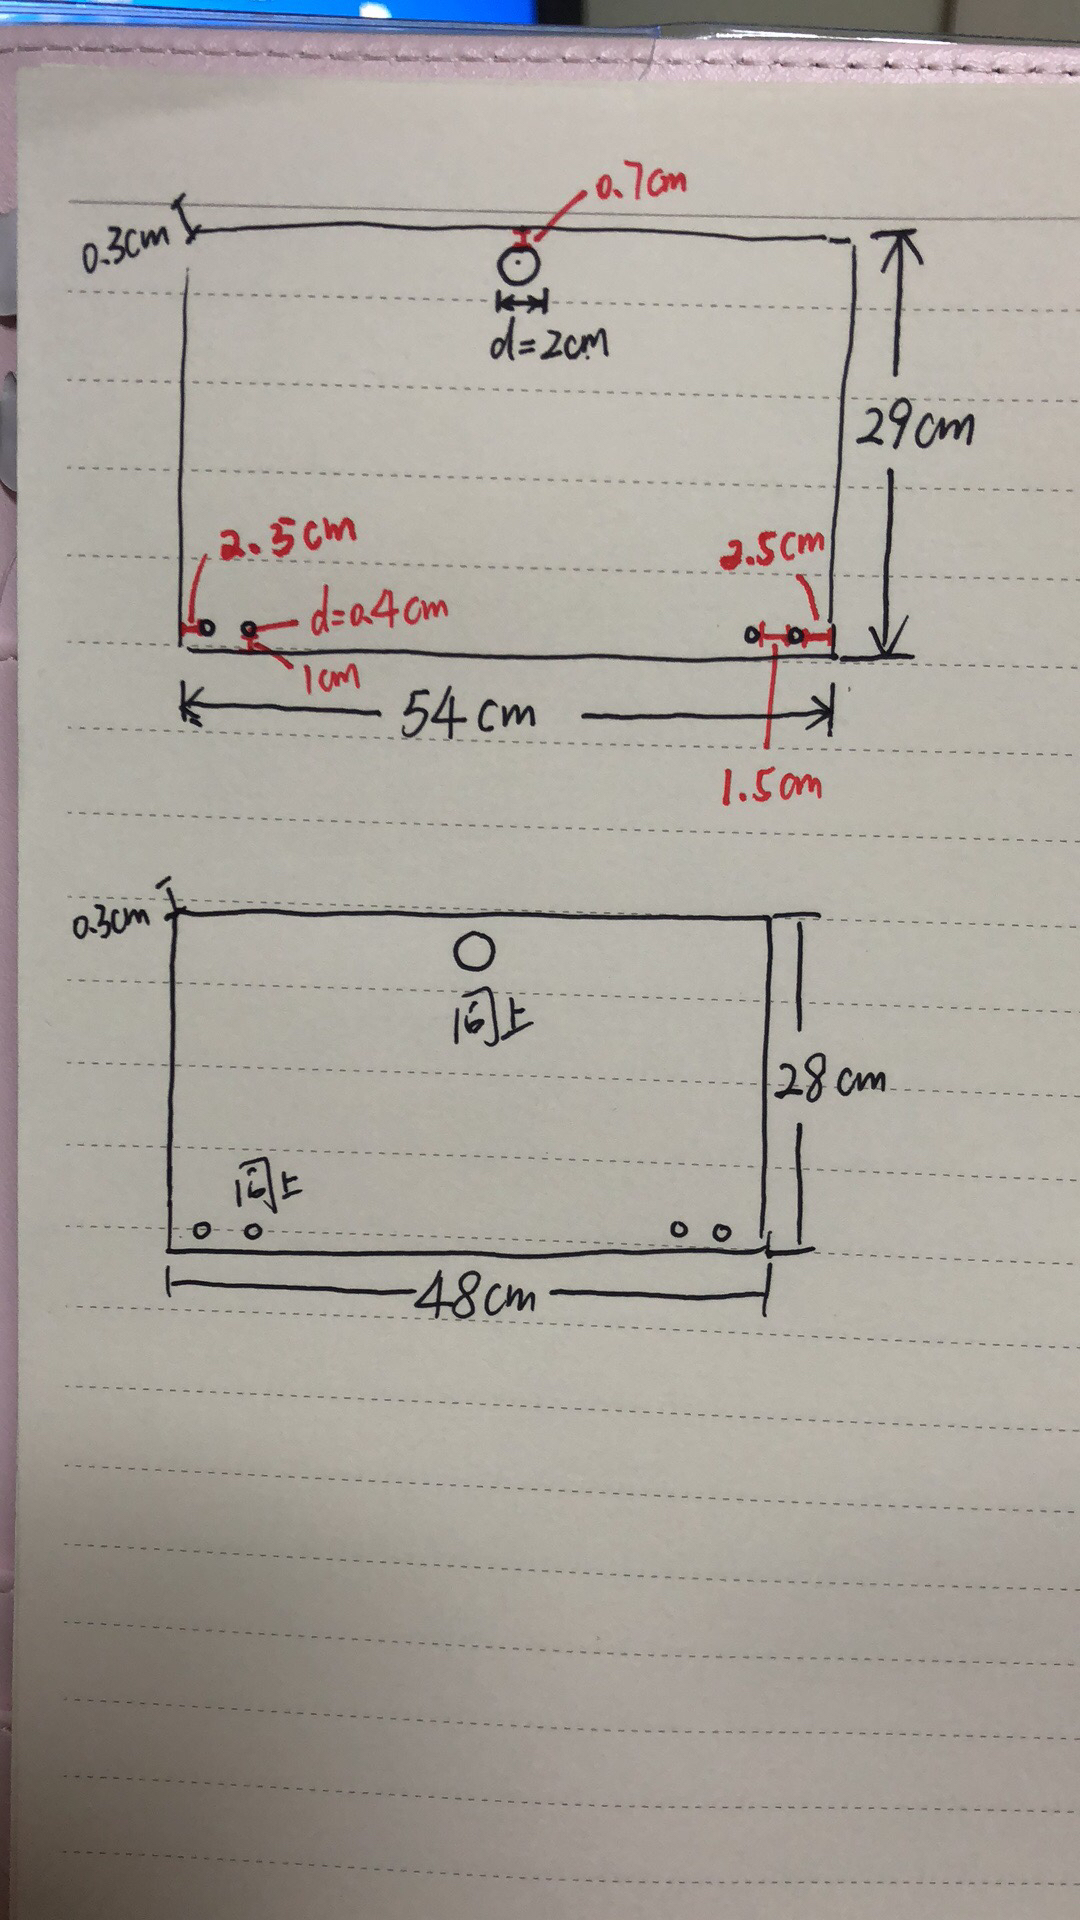 0.7cm
0.3cm
d=2cm
29cm
2.5cm
2.5cm
d=0.4cm
1cm
54cm
1.5cm
0.3cm
同上
28cm
同上
48cm